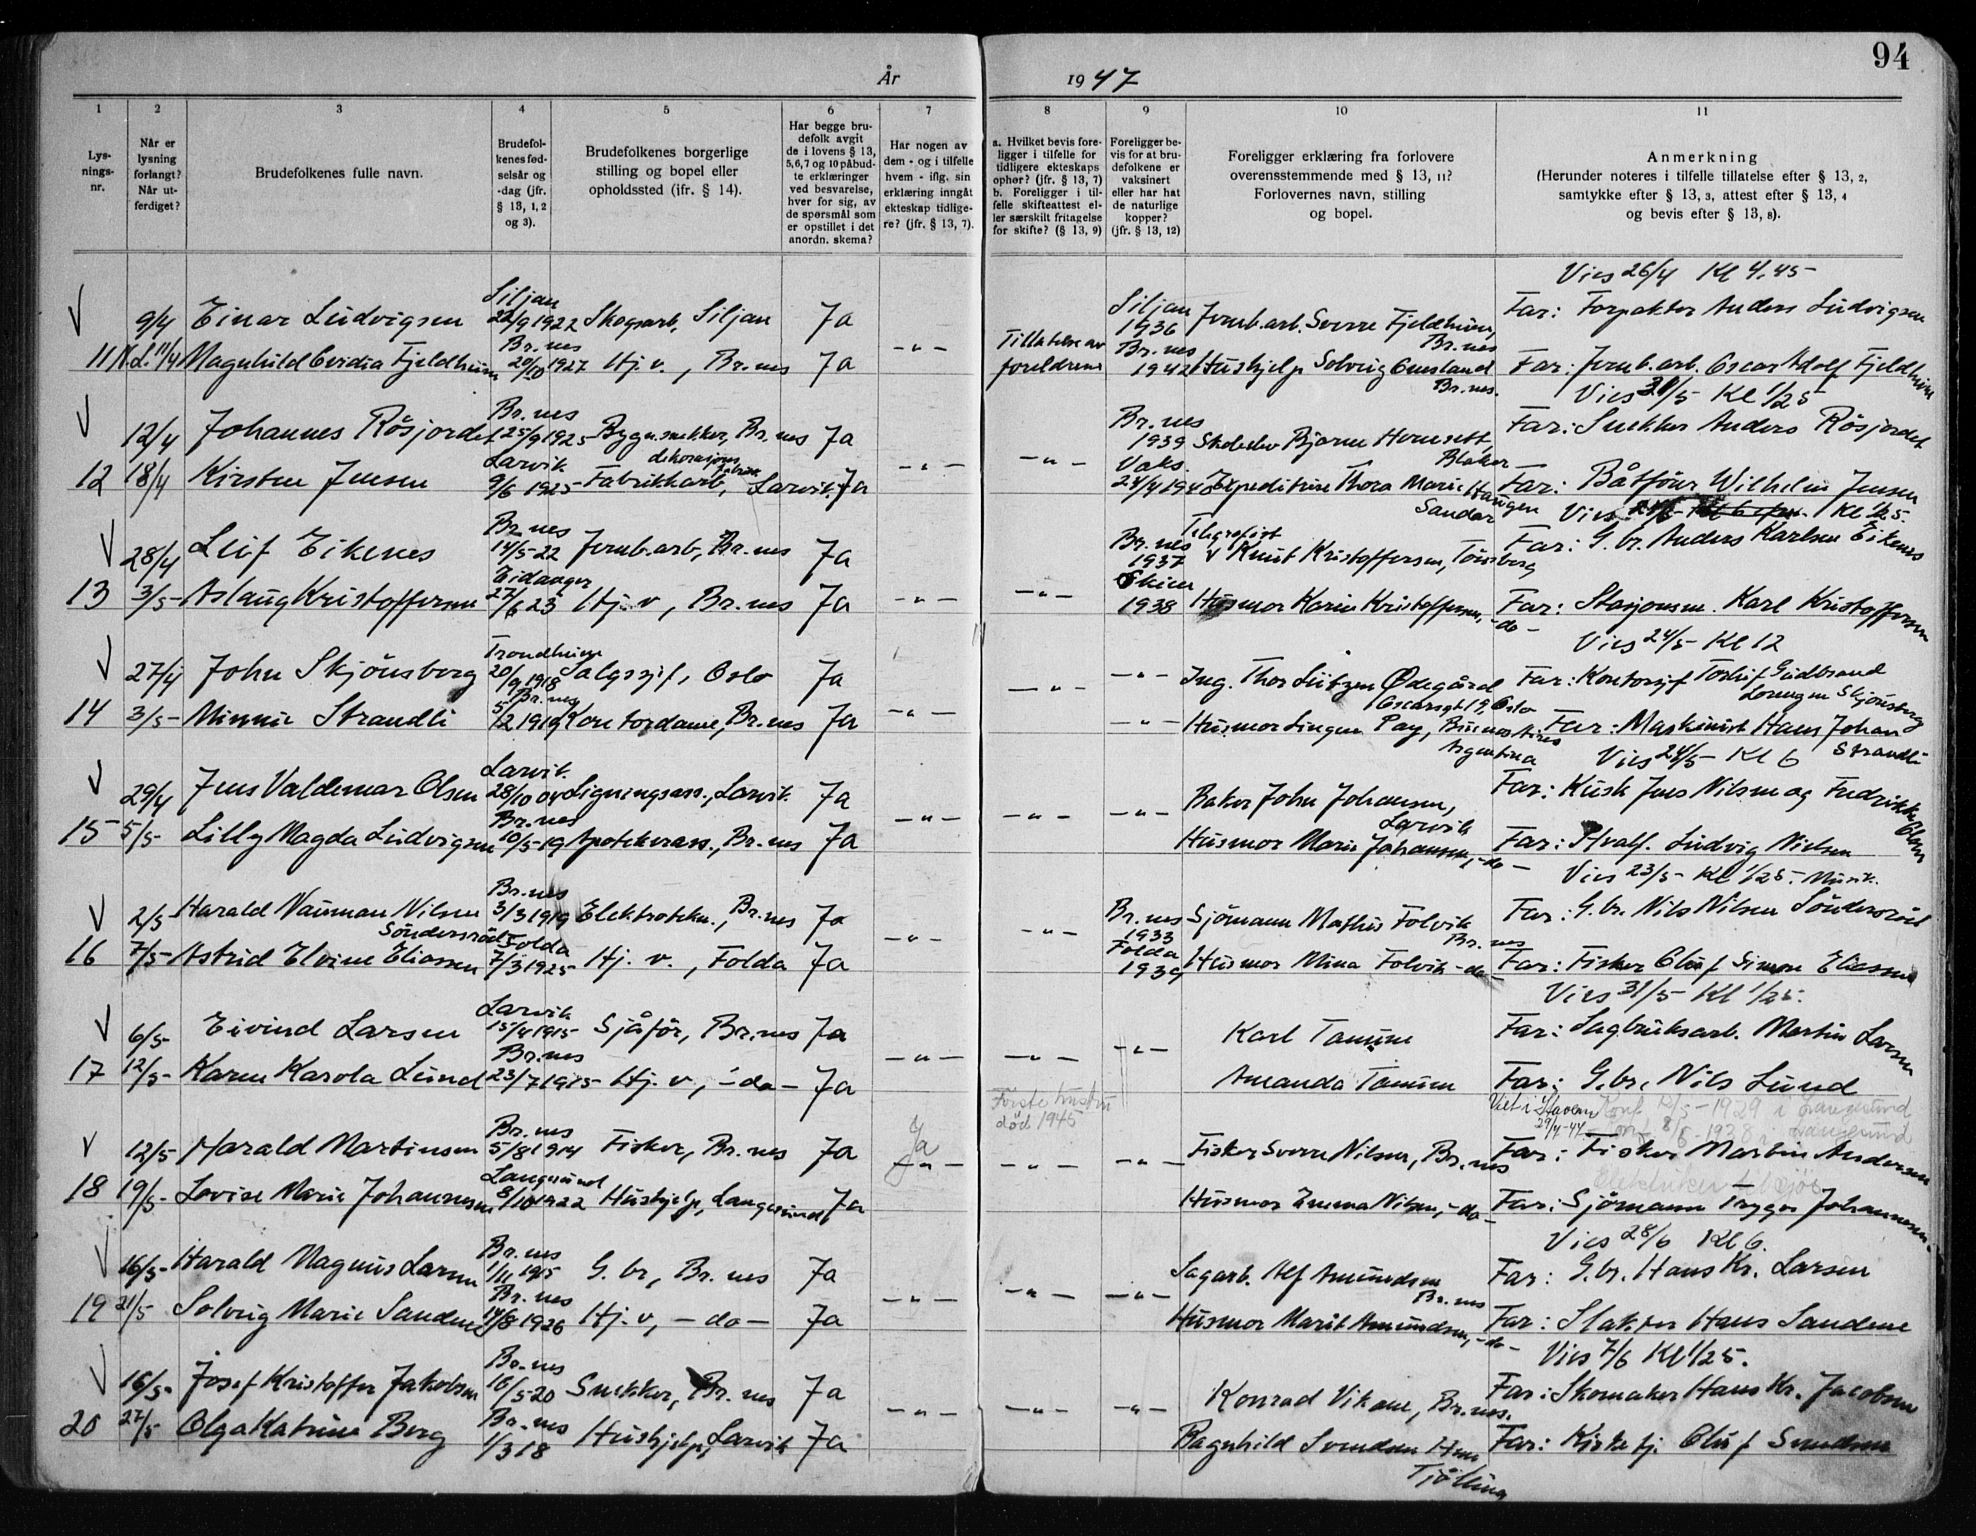 94
År 1947
1 2 3 4 5 6 7 8 9 10 11
Lys-
nings-
nr.
Når er
lysning
forlangt?
Når ut-
ferdiget?
Brudefolkenes fulle navn.
Brudefol-
kenes fød-
selsår og
-dag (jfr.
§ 13, 1, 2
og 3).
Brudefolkenes borgerlige
stilling og bopel eller
opholdssted (ifr. § 14).
Har begge bru-
defolk avgit
de i lovens § 13,
5,6,7 og 10 påbud-
te erklæringer
ved besvarelse,
hver for sig, av
de spørsmål som
er opstillet i det
anordn. skema?
Har nogen av
dem - og i tilfelle
hvem - iflg. sin
erklæring inngåt
ekteskap tidlige-
re? (jfr. § 13, 7).
a. Hvilket bevis fore-
ligger i tilfelle for
tidligere ekteskaps
ophør? (jfr. § 13, 7)
b. Foreligger i til-
felle skifteattest el-
ler særskilt fritagelse
for skifte? (§ 13, 9)
Foreligger be-
vis for at bru-
defolkene er
vaksinert
eller har hat
de naturlige
kopper?
(jfr. § 13, 12)
Foreligger erklæring fra forlovere
overensstemmende med § 13, 11?
Forlovernes navn, stilling
og bopel.
Anmerkning
(Herunder noteres i tilfelle tillatelse efter § 13, 2,
samtykke efter § 13, 3, attest efter § 13, 4
og bevis efter § 13, 8).
Vies 26/4 Kl 4.45
9/4 Einar Ludvigsen Siljan 22/9 1922 Skogsarb, Siljan Ja Siljan 1936 Jernb.arb. Sverre Fjeldheim, Br.nes Far: Forpakter Anders Ludvigsen
11 11/4 Magnhild Fjeldheim Br.nes 20/10 1927 Hj. v., Br.nes Ja -"- Tillatelse av foreldrene Br.nes 1942 Hushjelp Solveig Br.nes. Far: Jernb.arb. Oscar Adolf Fjeldheim
Vies 31/5 Kl 1/2 5
12/4 Johannes Røsjordet Br.nes 25/9 1925 Bygn.snekker, Br.nes Ja Br.nes 1939 Bjarne Hemsett Blaker Far: Snekker Anders Røsjordet
12 18/4 Kirsten Jensen Larvik 9/6 1925 Fabrikkarb, Larvik. Ja -"- -"- Vaks. Expeditrise Thora Marie Haugen Sandar Far: Båtfører Wilhelm Jensen
Vies Kl 1/2 5.
28/4 Leif Eikenes Br.nes 14/5-22 Jernb.arb, Br.nes Ja Br.nes 1937 Telegrafist Knut Kristoffersen, Tønsberg Far: G. br. Anders Karlsen Eikenes
13 3/5- Aslaug Kristoffersen Eidanger 27/6 23 Hj. v, Br.nes Ja -"- -"- Skien 1938 Husmor Karin Kristoffersen, -do- Far: Stasjonsm. Karl Kristoffersen
Vies 24/5- Kl 12
27/4 John Skjønsberg Trondheim 20/9 1918 Salgssjef, Oslo Ja -"- -"- Ing. Thor Lützen Ødegård Oscarsgt 19, Oslo Far: Kontorsjef Torleif Gudbrand Skjønsberg
14 3/5- Minnie Strandli Br.nes 5/2 1919 Kontordame, Br.nes Ja -"- -"- Husmor Pay, Buenos Aires Argentina Far: Maskinist Hans Johan Strandli
Vies 24/5- Kl 6
29/4 Jens Valdemar Olsen Larvik. 28/10 04 Ligningsass., Larvik. Ja Baker John Johansen, Larvik Far: Kusk Jens Nilsen og Fredrikke Olsen
15 5/5- Lilly Magda Ludvigsen Br.nes 10/5-19 Apotekerass., Br.nes Ja -"- -"- -"- Husmor Marie Johansen, -do- Far: Hvalf. Ludvig Nielsen
Vies 23/5- Kl 1/2 5. Musik.
2/5 Harald Nauman Nilsen Søndersrød Br.nes 3/3 1919 Elektrotekn., Br.nes Ja Br.nes 1933 Sjømann Mathis Folvik Br.nes Far: G.br. Nils Nilsen Søndersrød
16 7/5- Astrid Elvine Eliassen Folda 7/3 1925- Hj. v., Folda Ja -"- -"- Folda 1939 Husmor Mina Folvik -do- Far: Fisker Oluf Simon Eliassen
Vies 31/5- Kl 1/2 5.
6/5- Eivind Larsen Larvik 15/4 1915- Sjåfør, Br.nes Ja Karl Tanum Far: Sagbruksarb. Martin Larsen
17 12/5- Karen Karola Lund Br.nes 23/7 1915- Hj. v, -do- Ja -"- -"- -"- Amanda Tanum Far: G.br. Nils Lund
Første hustru død 1945
Viet i Stavern Konf 12/5-1929 i Langesund
Konf 1938 i Langesund
12/5- Harald Martinsen Br.nes 5/8 1914 Fisker, Br.nes Ja Ja Fisker Sverre Nilsen, Br.nes Far: Fisker Martin Andersen
18 19/5- Lovise Marie Johannessen Langesund 8/10 1922 Hushjelp, Langesund, Ja -"- -"- -"- Husmor Emma Nilsen, -do- Far: Sjømann Trygve Johannessen.
Vies 28/6 Kl 6.
16/5- Harald Magnus Larsen Br.nes 1/11 1915 G. br, Br. nes Ja Sagarb. Alf Amundsen Br.nes Far: G.br. Hans Kr. Larsen
19 21/5 Solveig Marie Sandene Br.nes 14/8 1926 Hj. v, -do- Ja -"- -"- -"- Husmor Marit Amundsen, -do- Far: Slakter Hans Sandene
Vies 7/6 Kl 1/2 5.
16/5- Josef Kristoffer Jakobsen Br.nes 16/5-20 Snekker, Br.nes Ja Konrad Vikane, Br.nes. Far: Skomaker Hans Kr. Jacobsen
20 27/5 Olga Katrine Berg Br.nes 1/3 18 Hushjelp, Larvik Ja -"- -"- -"- Ragnhild Svendsen Tjølling Far: Oluf Svendsen